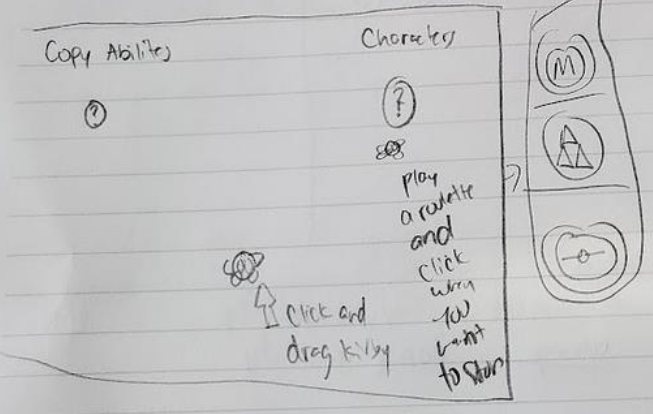 Copy Abilites
Characters
?
?
play
a roulette
and
click
when
you
want
to stop
click and
drag kirby
M